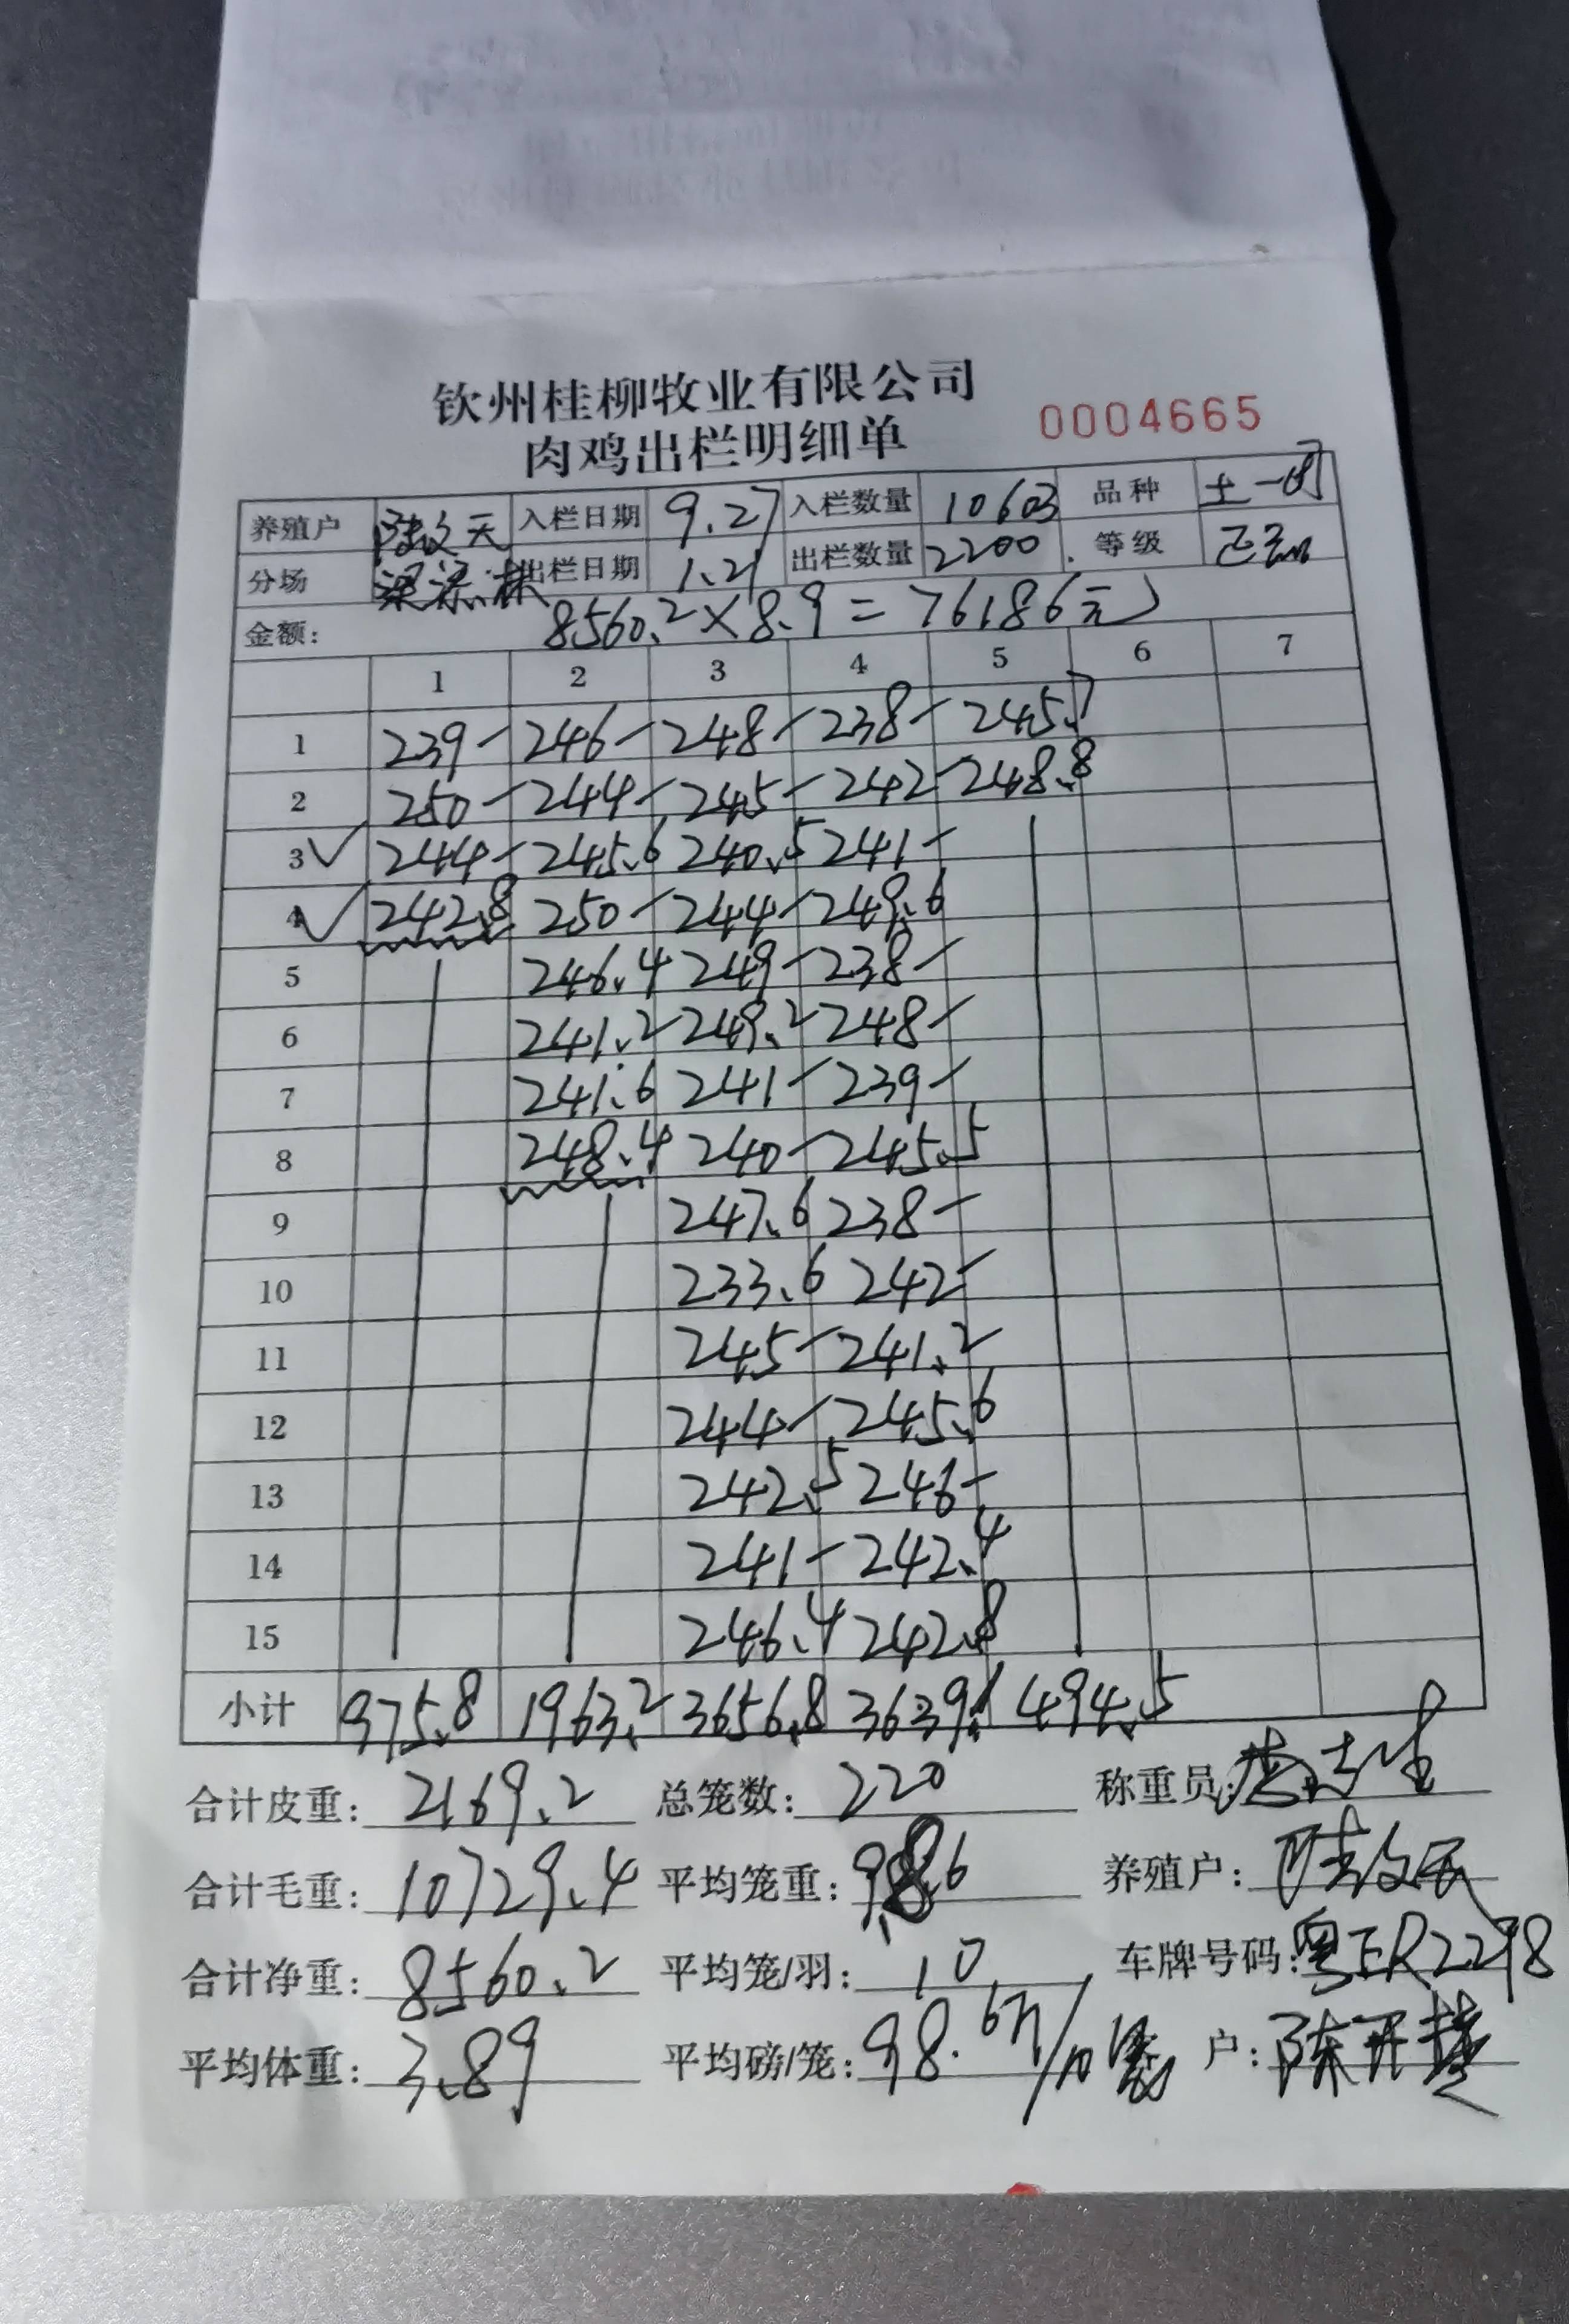 钦州桂柳牧业有限公司
肉鸡出栏明细单 0004665
养殖户 陆文天 入栏日期 9.27 入栏数量 10603 品种 土一
分场 出栏日期 1.21 出栏数量 2200. 等级 正品
金额: 8560.2×8.9=76186元
1 2 3 4 5 6 7
1 239- 246- 248- 238- 245.7
2 250- 244- 245- 242- 248.8
3 ✓ 244- 245.6 240.5 241-
4 ✓ 242.8 250- 244- 249.6
5 246.4 249- 238-
6 241.2 249.2 248-
7 241.6 241- 239-
8 248.4 240- 245.5
9 247.6 238-
10 233.6 242-
11 245- 241.2
12 244- 245.6
13 242.5 246-
14 241- 242.4
15 246.4 242.8
小计 975.8 1963.2 3656.8 3639.1 494.5
合计皮重: 2169.2 总笼数: 220 称重员:
合计毛重: 10729.4 平均笼重: 9.86 养殖户: 陆文天
合计净重: 8560.2 平均笼/羽: 10 车牌号码: 粤ER2298
平均体重: 3.89 平均磅/笼: 98.6斤/10 户: 陈开楚